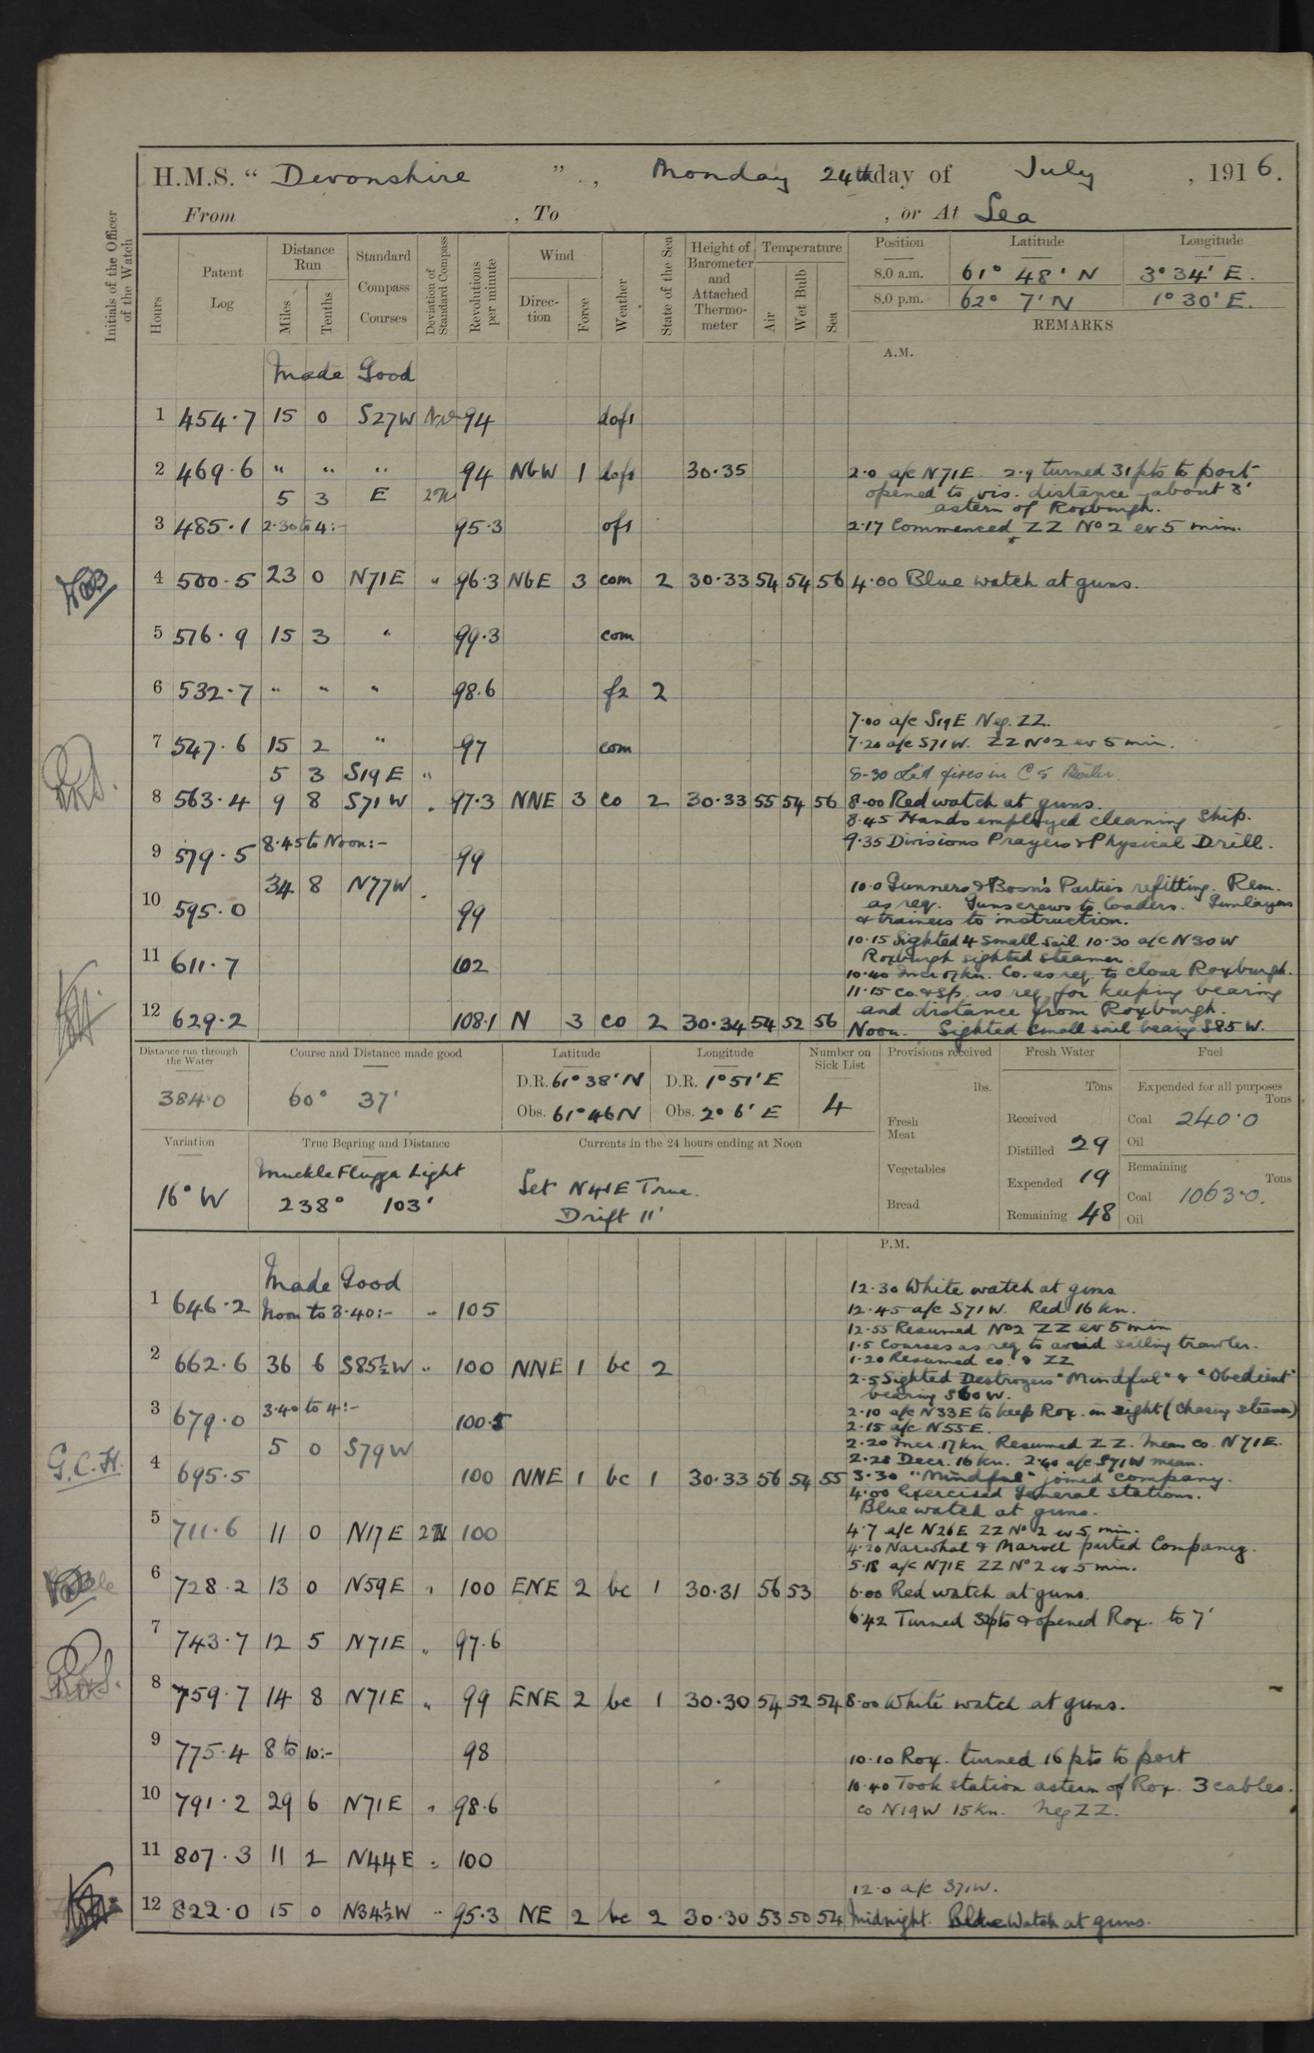 H.M.S. " Devonshire ", Monday 24th day of July, 1916.
From , To , or At Sea
Initials of the Officer of the Watch
Hours
Patent Log
Distance Run
Miles
Tenths
Standard Compass Courses
Deviation of Standard Compass
Revolutions per minute
Wind
Direction
Force
Weather
State of the Sea
Height of Barometer and Attached Thermometer
Temperature
Air
Wet Bulb
Sea
Position Latitude Longitude
8.0 a.m. 61° 48' N 3° 34' E.
8.0 p.m. 62° 7' N 1° 30' E.
REMARKS
A.M.
Made Good
1 454.7 15 0 S27W 94
2 469.6 " " " 94 NbW 1 30.35 2.0 a/c N71E. 2.9 turned 31 pts to port
5 3 E opened to vis. distance about 3'
astern of Roxburgh.
3 485.1 2.30 to 4:- 95.3 2.17 Commenced ZZ No 2 ev 5 min.
4 500.5 23 0 N71E " 96.3 NbE 3 com 2 30.33 54 54 56 4.00 Blue watch at guns.
5 516.9 15 3 " 99.3 com
6 532.7 " " " 98.6 f2 2
7.00 a/c S19E Neg. ZZ.
7 547.6 15 2 " 97 com 7.20 a/c S71W. ZZ No 2 ev 5 min.
5 3 S19E " 8-30 Lit fires in C 5 Boiler.
8 563.4 9 8 S71W . 97.3 NNE 3 co 2 30.33 55 54 56 8.00 Red watch at guns.
8.45 Hands employed cleaning Ship.
9 579.5 8.45 to Noon:- 99 9.35 Divisions Prayers & Physical Drill.
34 8 N77W . 10.0 Gunners & Bosn's Parties refitting. Rem.
10 595.0 99 as req. Guns crews to loaders. Gunlayers
& trainers to instruction.
10.15 Sighted 4 small sail 10.30 a/c N30W
11 611.7 102 Roxburgh sighted steamer
10.40 Incr 17 kn. Co. as req. to close Roxburgh.
11.15 Co. & Sp. as req. for keeping bearing
12 629.2 108.1 N 3 co 2 30.34 54 52 56 and distance from Roxburgh.
Noon. Sighted small sail bearing S85W.
Distance run through the Water
384.0
Course and Distance made good
60° 37'
Latitude
D.R. 61° 38' N
Obs. 61° 46 N
Longitude
D.R. 1° 51' E
Obs. 2° 6' E
Number on Sick List
4
Provisions received
lbs.
Fresh Meat
Vegetables
Bread
Fresh Water
Tons
Received
Distilled 29
Expended 19
Remaining 48
Fuel
Expended for all purposes
Tons
Coal 240.0
Oil
Remaining
Tons
Coal 1063.0.
Oil
Variation
16° W
True Bearing and Distance
Muckle Flugga Light
238° 103'
Currents in the 24 hours ending at Noon
Set N41E True.
Drift 11'
P.M.
Made Good
12.30 White watch at guns
1 646.2 Noon to 3.40:- " 105 12.45 a/c S71W. Red 16 kn.
12.55 Resumed No2 ZZ ev 5 min
1.5 Courses as req to avoid sailing trawler.
2 662.6 36 6 S85½W " 100 NNE 1 bc 2 1.20 Resumed co. & ZZ
2.5 Sighted Destroyers "Mindful" & "Obedient"
bearing S60W.
3 679.0 3.40 to 4:- 100.5 2.10 a/c N33E to keep Rox. in sight (Chasing steamer)
2.15 a/c N55E.
5 0 S79W 2.20 Incr. 17 kn Resumed ZZ. Mean co. N71E.
2.28 Decr. 16 kn. 2.40 a/c S71W mean.
G.C.H. 4 695.5 100 NNE 1 bc 1 30.33 56 54 55 3.30 "Mindful" joined company.
4.00 Exercised General Stations.
Blue watch at guns.
5 711.6 11 0 N17E 100 4.7 a/c N26E ZZ No 2 ev 5 min.
4.20 Narwhal & Marvel parted Company.
5.18 a/c N71E ZZ No 2 ev 5 min.
6 728.2 13 0 N59E " 100 ENE 2 bc 1 30.31 56 53 6.00 Red watch at guns.
6.42 Turned 32 pts & opened Rox. to 7'
7 743.7 12 5 N71E " 97.6
8 759.7 14 8 N71E " 99 ENE 2 bc 1 30.30 54 52 54 8.00 White watch at guns.
9 775.4 8 to 10:- 98 10.10 Rox. turned 16 pts to port
10.40 Took station astern of Rox. 3 cables.
10 791.2 29 6 N71E " 98.6 Co N19W 15 kn. Neg ZZ.
11 807.3 11 2 N44E " 100
12.0 a/c S71W.
12 822.0 15 0 N34½W " 95.3 NE 2 bc 2 30.30 53 50 54 Midnight. Blue Watch at guns.